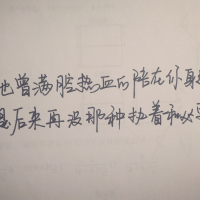 他曾满腔热血的陪在你身
是后来再没那种执着和